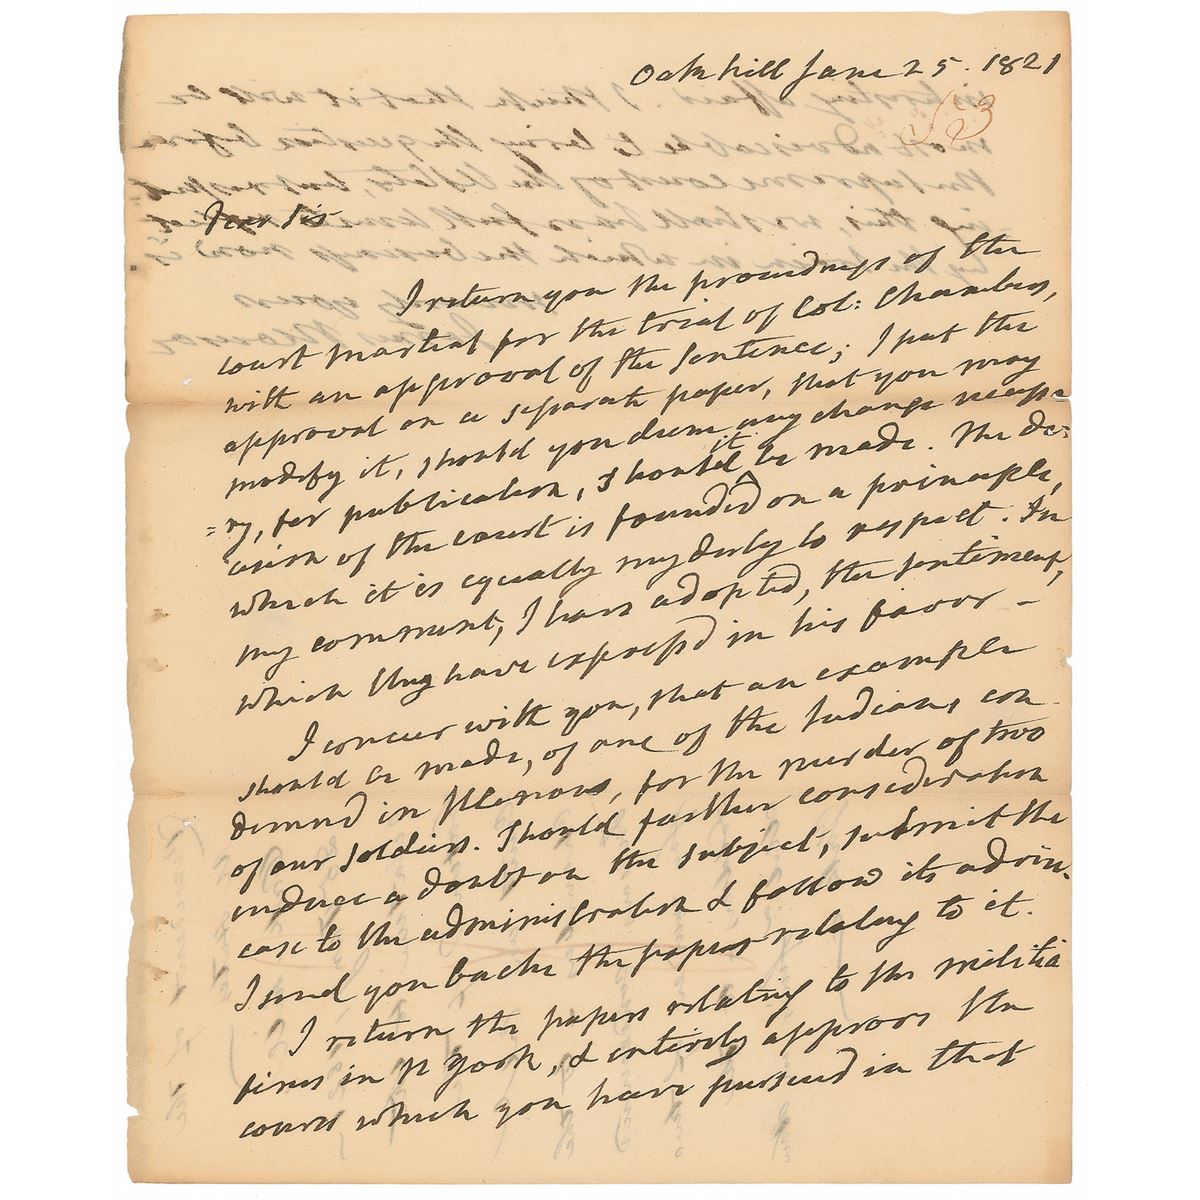 Oakhill June 25. 1821
Dear Sir
I return you the proceedings of the
court martial for the trial of Col: Chambers,
with an approval of the sentence; I put the
approval on a separate paper, that you may
modify it, should you deem any change necessa-
=ry, for publication, should it be made. The de=
cision of the court is founded on a principle,
which it is equally my duty to respect. In
my comment, I have adopted, the sentiment,
which they have expressd in his favor –
I concur with you, that an example
should be made, of one of the Indians, con
demned in Illenois, for the murder of two
of our soldiers. Should further consideration
induce a doubt on the subject, submit the
case to the administration & follow its advice.
I send you backe the papers relating to it.
I return the papers relating to the militia
fines in N York, & entirely approve the
course which you have pursued in that